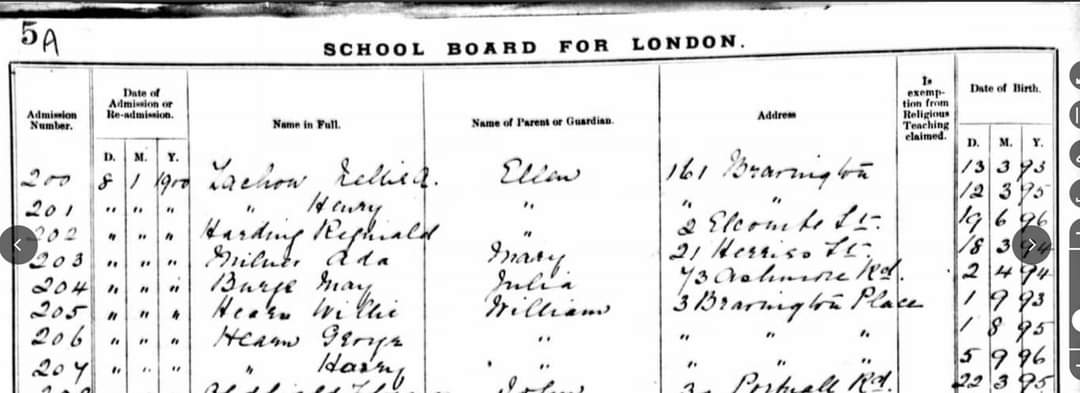 5A
SCHOOL BOARD FOR LONDON.
Admission Number. Date of Admission or Re-admission. Name in Full. Name of Parent or Guardian. Address Is exemption from Religious Teaching claimed. Date of Birth.
D. M. Y. D. M. Y.
200 8 1 1900 Nellie A. Ellen 161 Bravington 13 3 93
201 " " " " Henry " " " 12 3 95
202 " " " Harding Reginald " 2 Elcombe St. 19 6 96
203 " " " Milner Ada Mary 21 Herries St. 18 3 94
204 " " " Burge May Julia 73 Ashmore Rd. 2 4 94
205 " " " Hearn Willie William 3 Bravington Place 1 9 93
206 " " " Hearn George " " " " 1 8 95
207 " " " " Harry " " " " 5 9 96
John Portnall Rd. 22 3 95